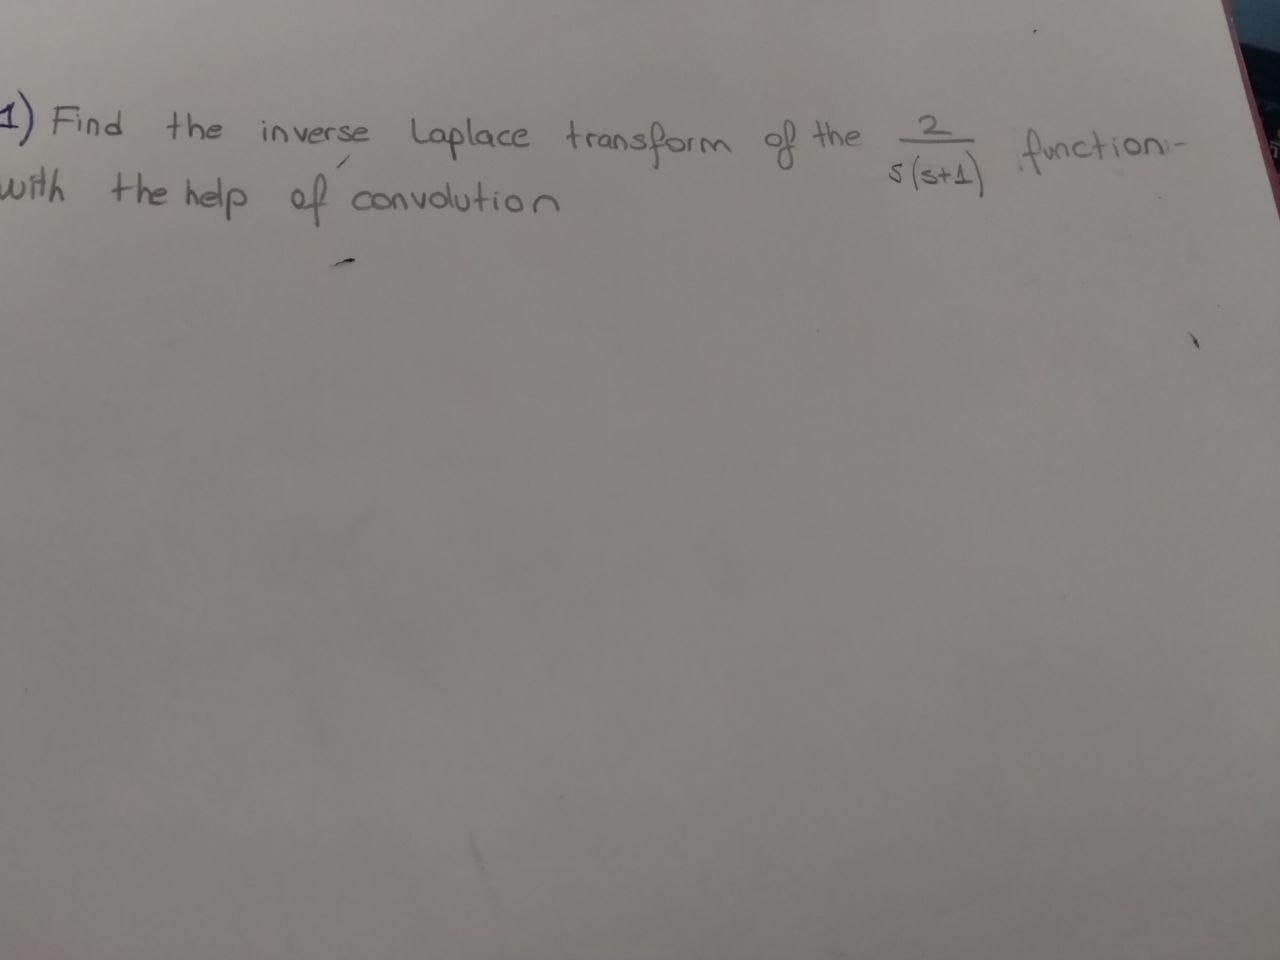 1) Find the inverse Laplace transform of the 2/s(s+1) function-
with the help of convolution